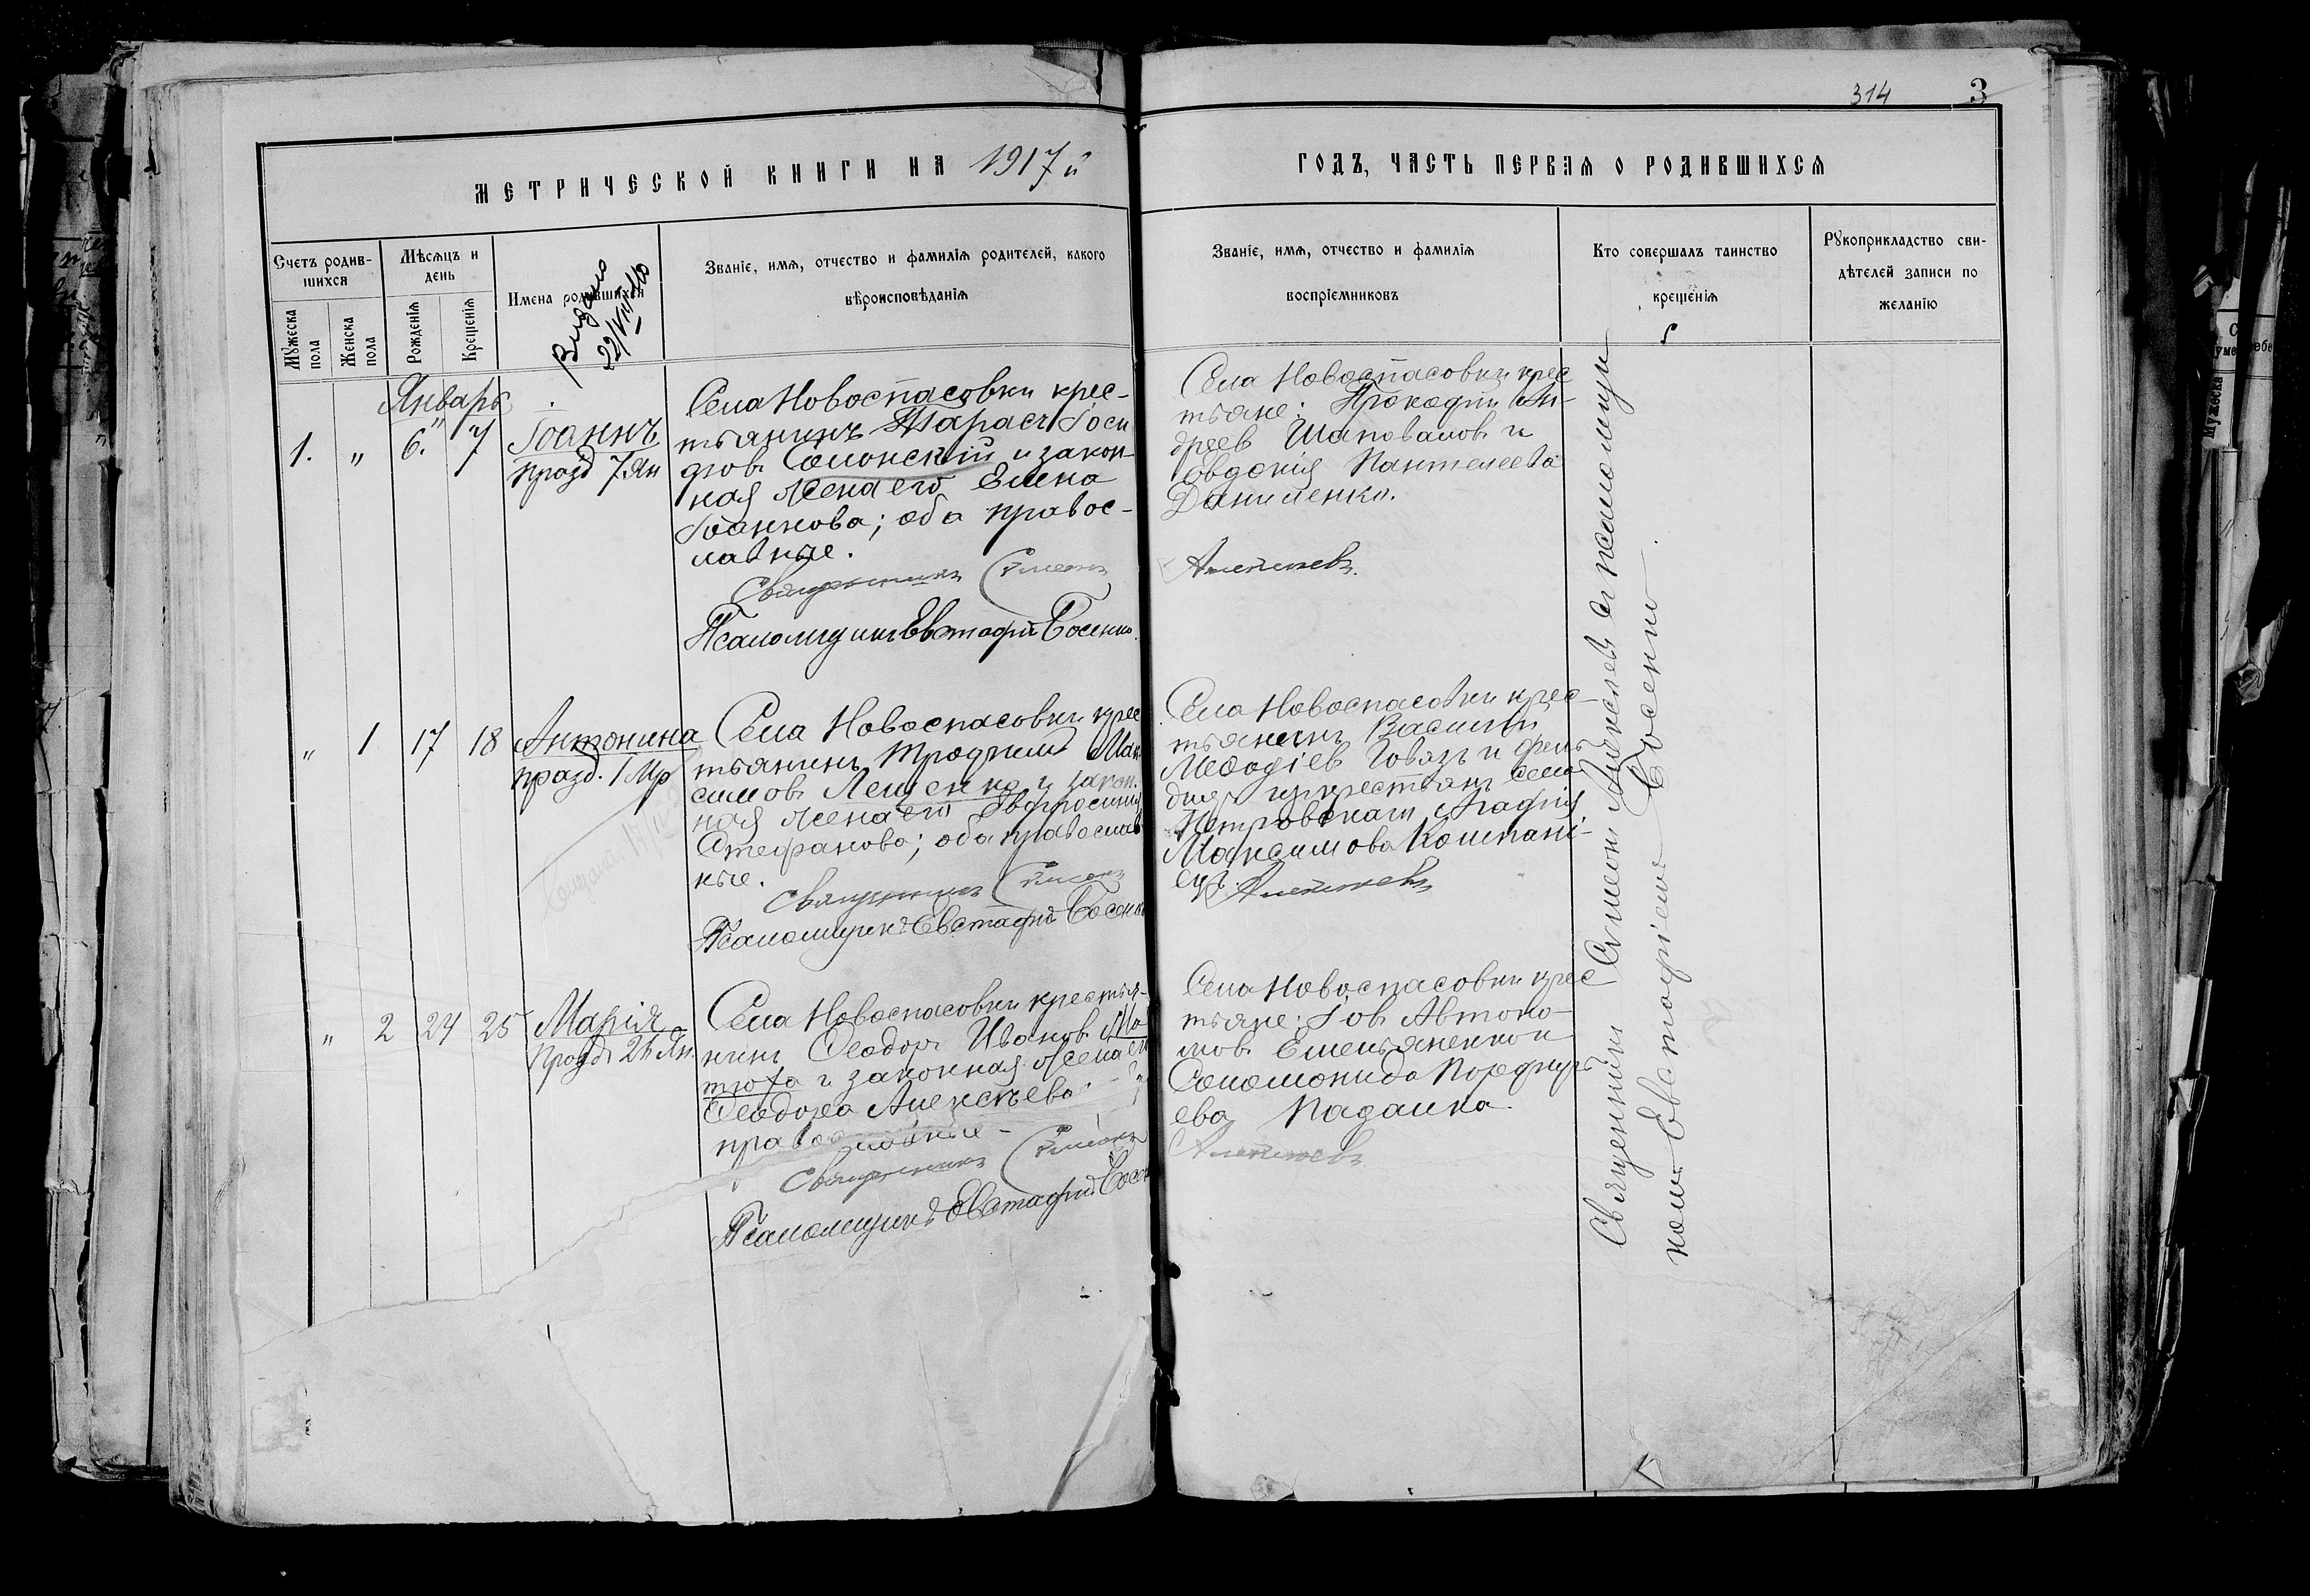 314 3
МЕТРИЧЕСКОЙ КНИГИ НА 1917 й
ГОДЪ, ЧАСТЬ ПЕРВАЯ О РОДИВШИХСЯ
Счетъ родив-
шихся
Мужеска пола
Женска пола
Мѣсяцъ и
день
Рожденія
Крещенія
Имена родившихся
Выдано
Званіе, имя, отчество и фамилія родителей, какого
вѣроисповѣданія
Званіе, имя, отчество и фамилія
воспріемниковъ
Кто совершалъ таинство
крещенія
Рукоприкладство сви-
дѣтелей записи по
желанію
Январь
1. " 6. 7
Іоаннъ
празд 7 Ян
Села Новоспасовки крес-
тьянинъ Тарасъ Іоси
фовъ Солонскій и закон-
ная жена его Елена
Іоаннова; оба правос-
лавные.
Священникъ Симеонъ
Псаломщикъ Евстафій Босенко.
Села Новоспасовки крес
тьяне: Прокофій Ан-
дреев Шаповаловъ и
Евдокія Пантелеева
Даниленко.
Алексѣевъ.
" 1 17 18
Антонина
празд. 1 Мр
Села Новоспасовки крес
тьянинъ Трофимъ Мак
симовъ Лещенко и закон.
ная жена его Евфросинія
Стефанова; оба православ
ные.
Священникъ Симеонъ
Псаломщикъ Евстафій Босенко
Села Новоспасовки крес-
тьянинъ Василій
Меѳодіев Говязъ и
крестьян села
Петровскаго Агафія
Максимова Компані-
ецъ.
Алексѣевъ
" 2 24 25
Марія
празд 26 Ян.
Села Новоспасовки крестья-
нинъ Ѳеодоръ Ивановъ Ма-
тюха и законная жена его
Ѳеодора Алексѣева
православные -
Священникъ Симеонъ
Псаломщикъ Евстафій Босен
Села Новоспасовки крес
тьяне: Іовъ Автоно-
мовъ Емельяненко и
Соломонида Порфирь
ева Падалка.
Алексѣевъ
Священникъ Симеонъ Алексѣевъ съ псаломщи
комъ Евстафіемъ Босенко.